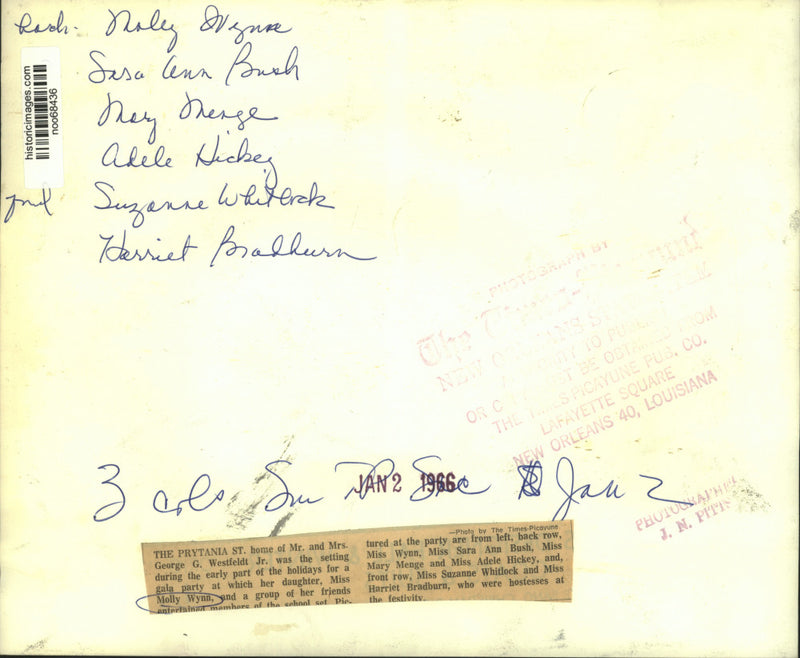 back. Molly Wynne
Sara Ann Bush
Mary Menge
Adele Hickey
Suzanne Whitlock
Harriet Bradburn
historicimages.com
noo68436
PHOTOGRAPH BY
The
NEW ORLEANS
TO
OR NOT BE OBTAINED FROM
THE TIMES-PICAYUNE PUB. CO.
LAFAYETTE SQUARE
NEW ORLEANS 40, LOUISIANA
3 cols Sun TP Soc Jan 2
JAN 2 1966
PHOTOGRAPHER
J. N. PITT
THE PRYTANIA ST. home of Mr. and Mrs.
George G. Westfeldt Jr. was the setting
during the early part of the holidays for a
gala party at which her daughter, Miss
Molly Wynn, and a group of her friends
entertained members of the school set. Pic-
—Photo by The Times-Picayune
tured at the party are from left, back row,
Miss Wynn, Miss Sara Ann Bush, Miss
Mary Menge and Miss Adele Hickey, and,
front row, Miss Suzanne Whitlock and Miss
Harriet Bradburn, who were hostesses at
the festivity.